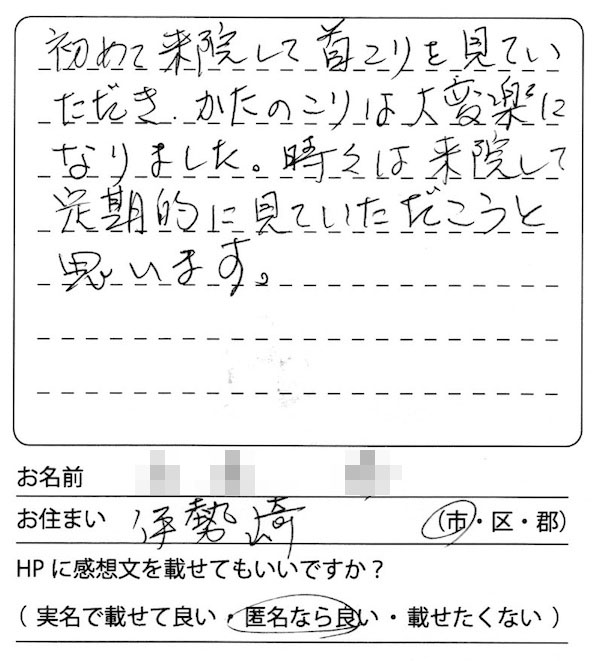 初めて来院して首こりを見てい
ただき、かたのこりは大変楽に
なりました。時々は来院して
定期的に見ていただこうと
思います。
お名前
お住まい 伊勢崎 (市・区・郡)
HPに感想文を載せてもいいですか？
( 実名で載せて良い・匿名なら良い・載せたくない )